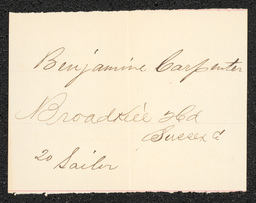 Benjamine Carpenter
Broadkill Hd
Sussex C
20 Sailor